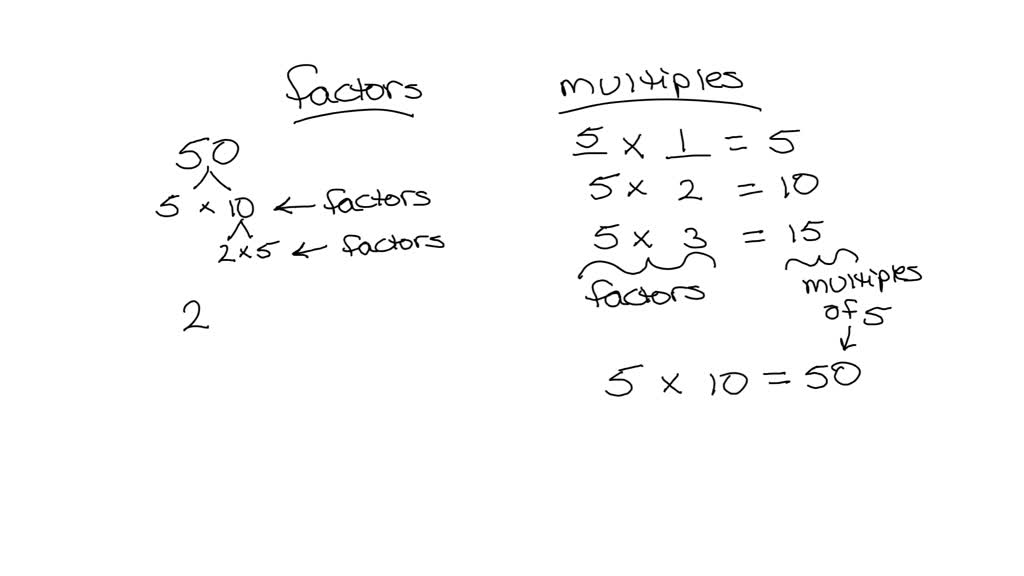 factors
50
5 × 10 ← factors
2×5 ← factors
2
multiples
5 × 1 = 5
5 × 2 = 10
5 × 3 = 15
factors
multiples
of 5
↓
5 × 10 = 50